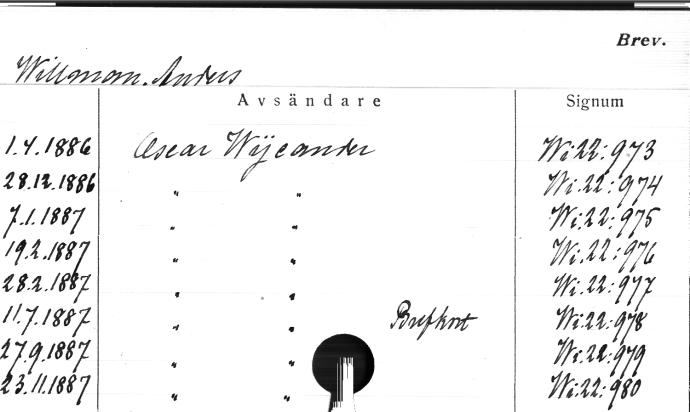 Brev.
Willman, Anders
Avsändare Signum
1.4.1886 Oscar Wijcander Wi:22:973
28.12.1886 " " Wi:22:974
7.1.1887 " " Wi:22:975
19.2.1887 " " Wi:22:976
28.2.1887 " " Wi:22:977
11.7.1887 " " Brefkort Wi:22:978
27.9.1887 " " Wi:22:979
23.11.1887 " " Wi:22:980